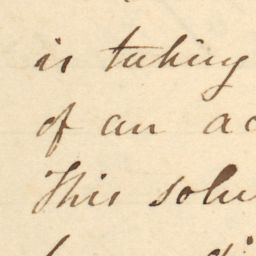 is taking
of an ac
This solu